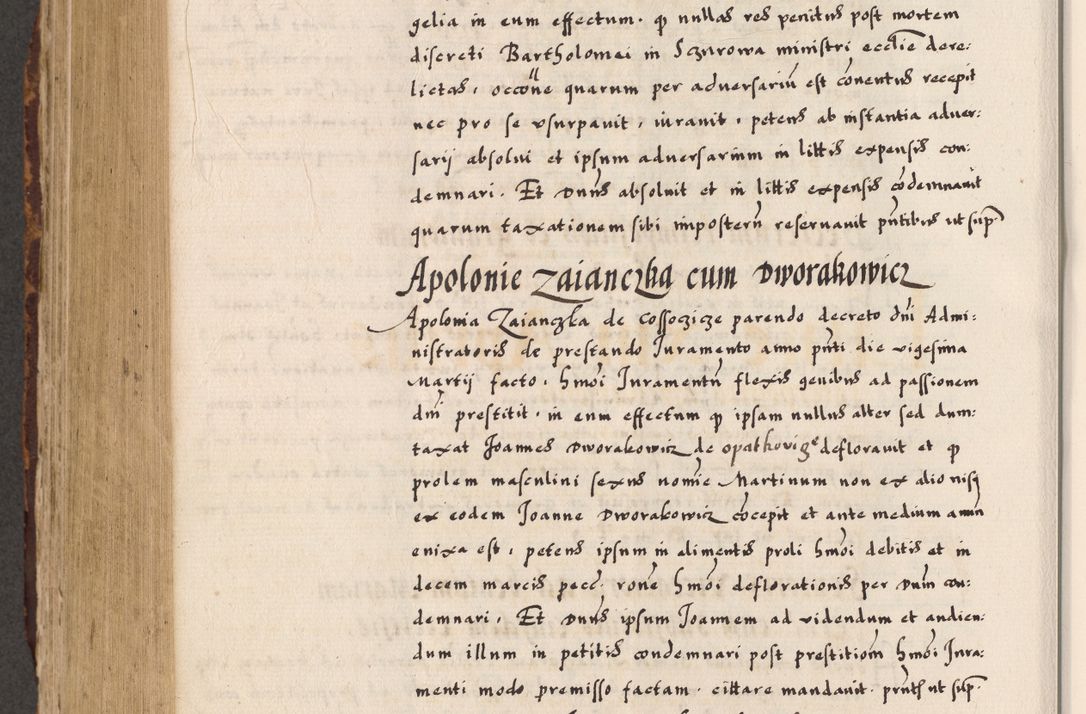 gelia in eum effectum. q̨ nullas res penitus post mortem
discreti Bartholomei in Szurowa ministri eccłie dere:
lictas, occōne quarum per adversariū est cōventus recepit
nec pro se vsurpavit, iuravit, petens ab instantia adver:
sarij absolvi et ipsum adversarium in littis expensis con:
demnari. Et Dnus absolvit et in littis expensis cōdemnavit
quarum taxationem sibi imposterū reservavit pntibus ut sup
Apolonie Zaianczka cum Dworakowicz
Apolonia Zaianczka de Cossoczicze parendo decreto dni Admi:
nistratoris de prestando Iuramento anno pnti die vigesima
Martij facto, hmōi Iuramentū flexis genibus ad passionem
dni prestitit. in eum effectum q̨ ipsam nullus alter sed dum:
taxat Joannes Dworakowicz de opatkovicze defloravit et q̨
prolem masculini sexus nomīe Martinum non ex alio nisi
ex eodem Joanne Dworakowicz cōcepit et ante medium anni
enixa est, petens ipsum in alimentis proli hmōi debitis et in
decem marcis pecc. rōne hmōi deflorationis per Dnum con:
demnari. Et Dnus ipsum Joannem ad videndum et audien:
dum illum in petitis condemnari post prestitiom hmōi Jura:
menti modo premisso factam. cittare mandavit. pntibus ut sup.